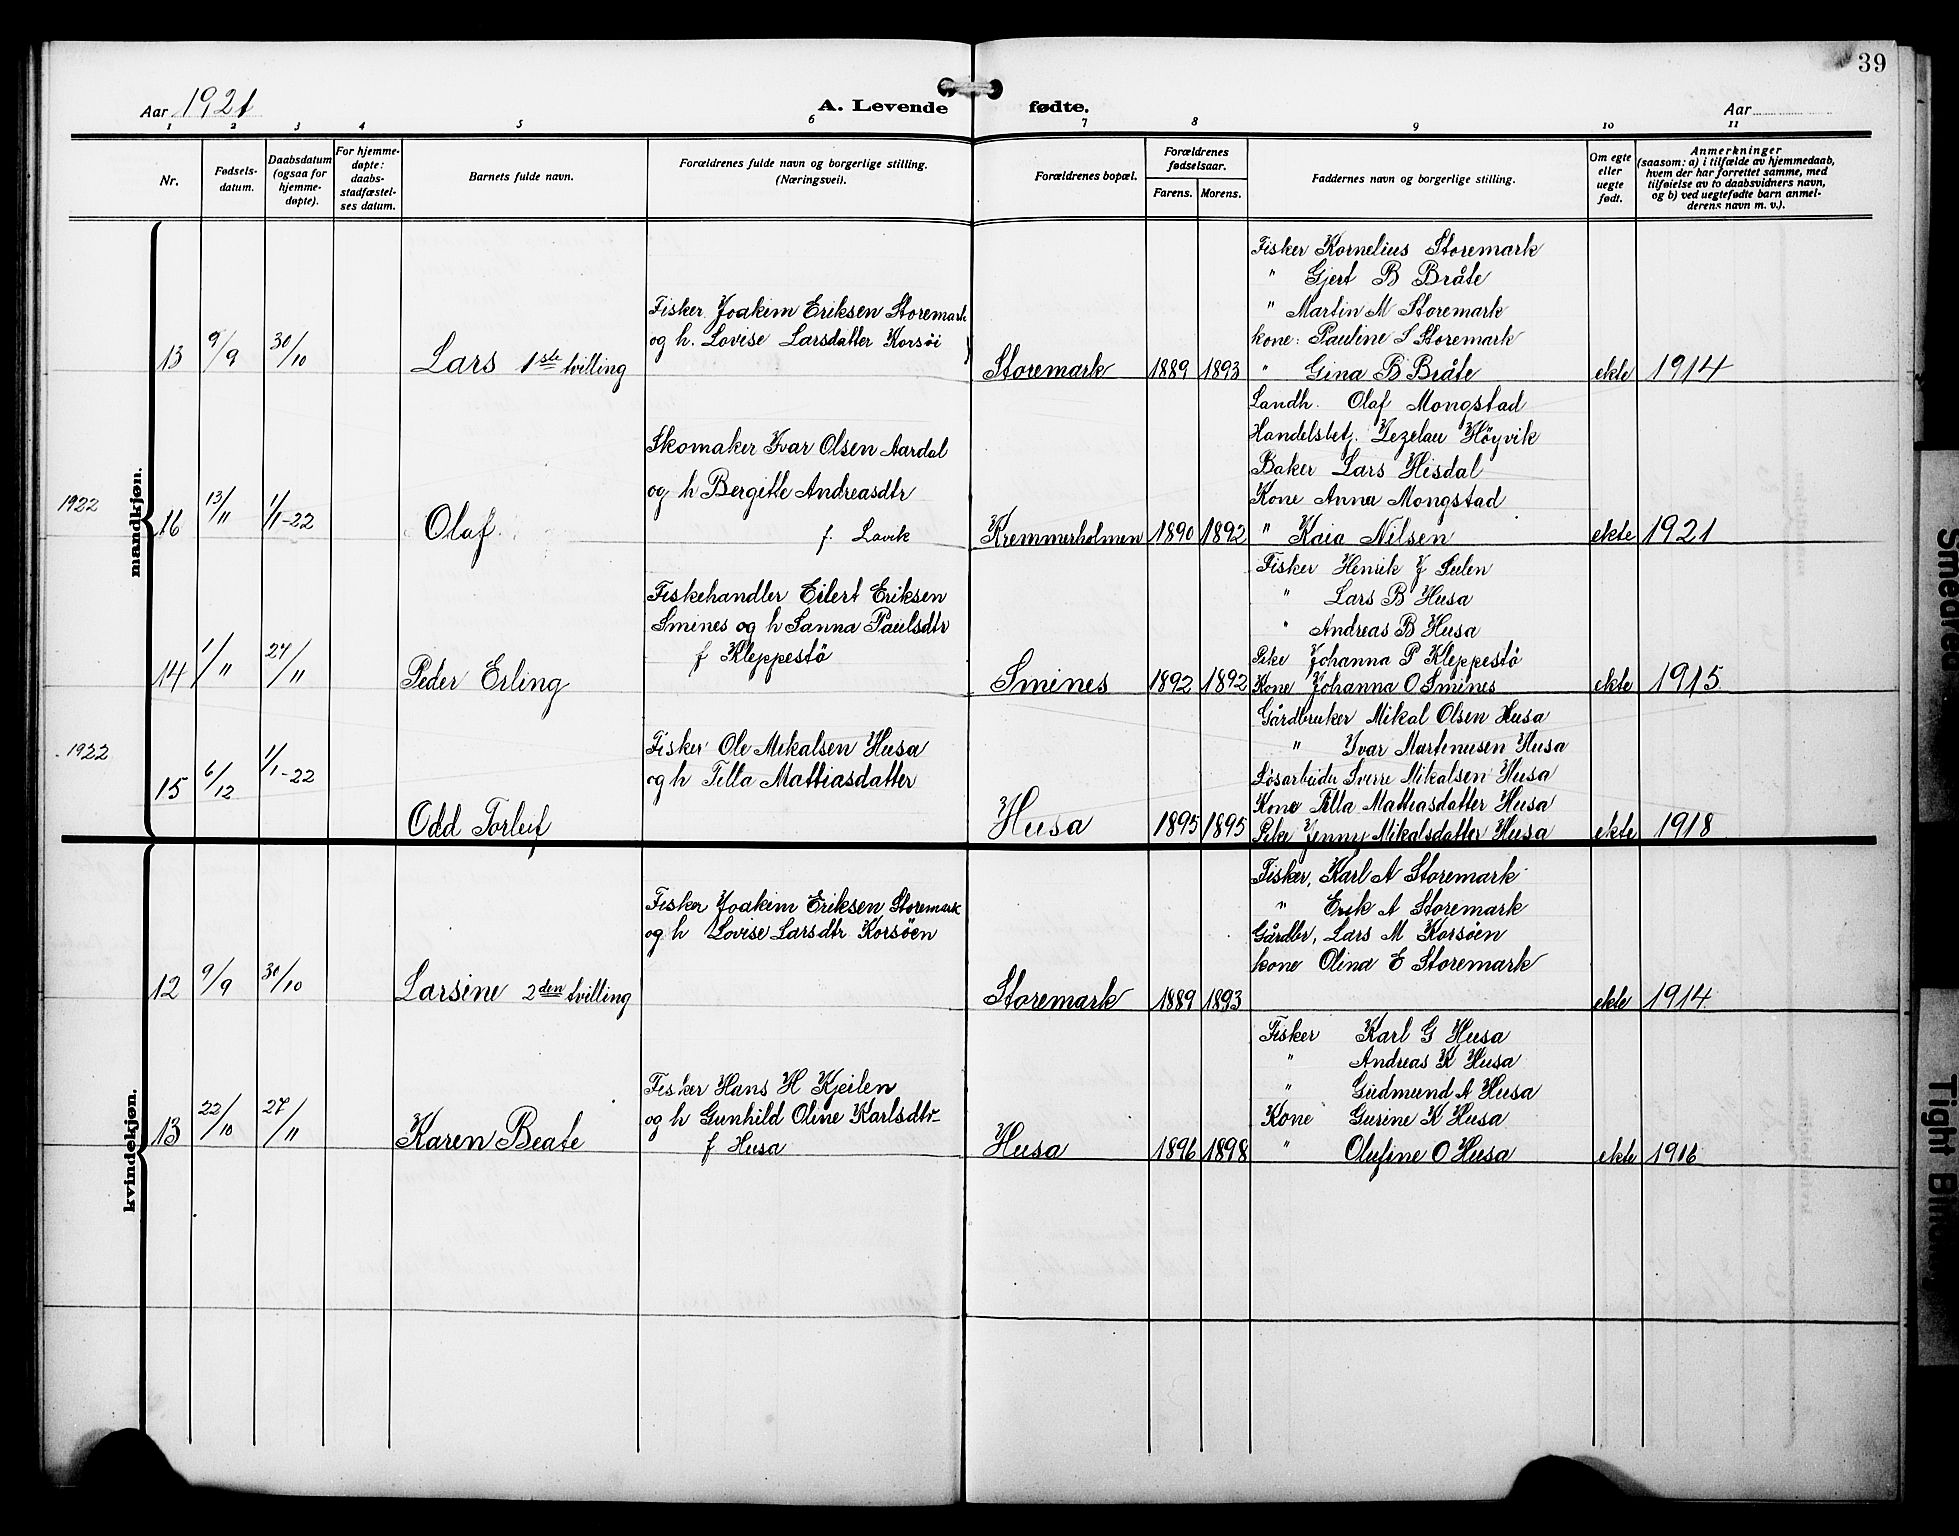 39
Aar 1921
A. Levende fødte.
Aar
1 2 3 4 5 6 7 8 9 10 11
Nr.
Fødsels-
datum.
Daabsdatum
(ogsaa for
hjemme-
døpte).
For hjemme-
døpte:
daabs-
stadfæstel-
ses datum.
Barnets fulde navn.
Forældrenes fulde navn og borgerlige stilling.
(Næringsvei).
Forældrenes bopæl.
Forældrenes
fødselsaar.
Farens. Morens.
Faddernes navn og borgerlige stilling.
Om egte
eller
uegte
født.
Anmerkninger
(saasom: a) i tilfælde av hjemmedaab,
hvem der har forrettet samme, med
tilføielse av to daabsvidners navn,
og b) ved uegtefødte barn anmel-
derens navn m. v.).
mandkjøn.
13 9/9 30/10 Lars 1ste tvilling
Fisker Joakim Eriksen Storemark
og h. Lovise Larsdatter Korsøi
Storemark 1889 1893
Fisker Kornelius Storemark
" Gjert B Bråte
" Martin M Storemark
kone: Pauline S Storemark
" Gina B Bråte
ekte 1914
1922
16 13/11 1/1-22 Olaf
Skomaker Ivar Olsen Aardal
og h Bergitte Andreasdtr
f. Lavik
Kremmerholmen 1890 1892
Landh. Olaf Mongstad
Handelsbetj. Høyvik
Baker Lars Hisdal
Kone Anna Mongstad
" Kaia Nilsen
ekte 1921
14 1/11 27/11 Peder Erling
Fiskehandler Eilert Eriksen
Smines og h Sanna Paulsdtr
f Kleppestö
Smines 1892 1892
Fisker Henrik J Sulen
" Lars B Husa
" Andreas B Husa
Pike Johanna P Kleppestö
Kone Johanna O Smines
ekte 1915
1922
15 6/12 1/1-22 Odd Torleif
Fisker Ole Mikalsen Husa
og h Tilla Mattiasdatter
Husa 1895 1895
Gårdbruker Mikal Olsen Husa
" Ivar Martinusen Husa
Løsarbeider Sverre Mikalsen Husa
Kone Tilla Mathiasdatter Husa
Pike Jenny Mikalsdatter Husa
ekte 1918
kvindekjøn.
12 9/9 30/10 Larsine 2den tvilling
Fisker Joakim Eriksen Storemark
og h Lovise Larsdtr Korsøen
Storemark 1889 1893
Fisker, Karl A Storemark
" Erik A Storemark
Gårdbr, Lars M Korsøen
kone Olina E Storemark
ekte 1914
13 22/10 27/11 Karen Beate
Fisker Hans H Kjeilen
og h Gunhild Oline Karlsdtr
f Husa
Husa 1896 1898
Fisker Karl G Husa
" Andreas K Husa
" Gudmund A Husa
Kone Gurine K Husa
" Olufine O Husa
ekte 1916
Smeared
Tight Bind